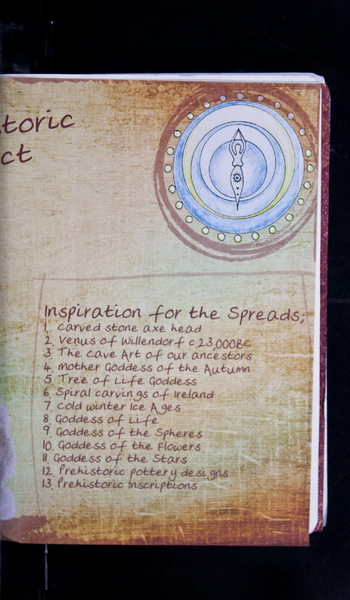 toric
ct
Inspiration for the Spreads;
1. Carved stone axe head
2. Venus of Willendorf c23,000BC
3. The Cave Art of our ancestors
4. Mother Goddess of the Autumn
5. Tree of Life Goddess
6. Spiral carvings of Ireland
7. Cold winter Ice Ages
8. Goddess of Life
9. Goddess of the Spheres
10. Goddess of the Flowers
11. Goddess of the Stars
12. Prehistoric pottery designs
13. Prehistoric Inscriptions